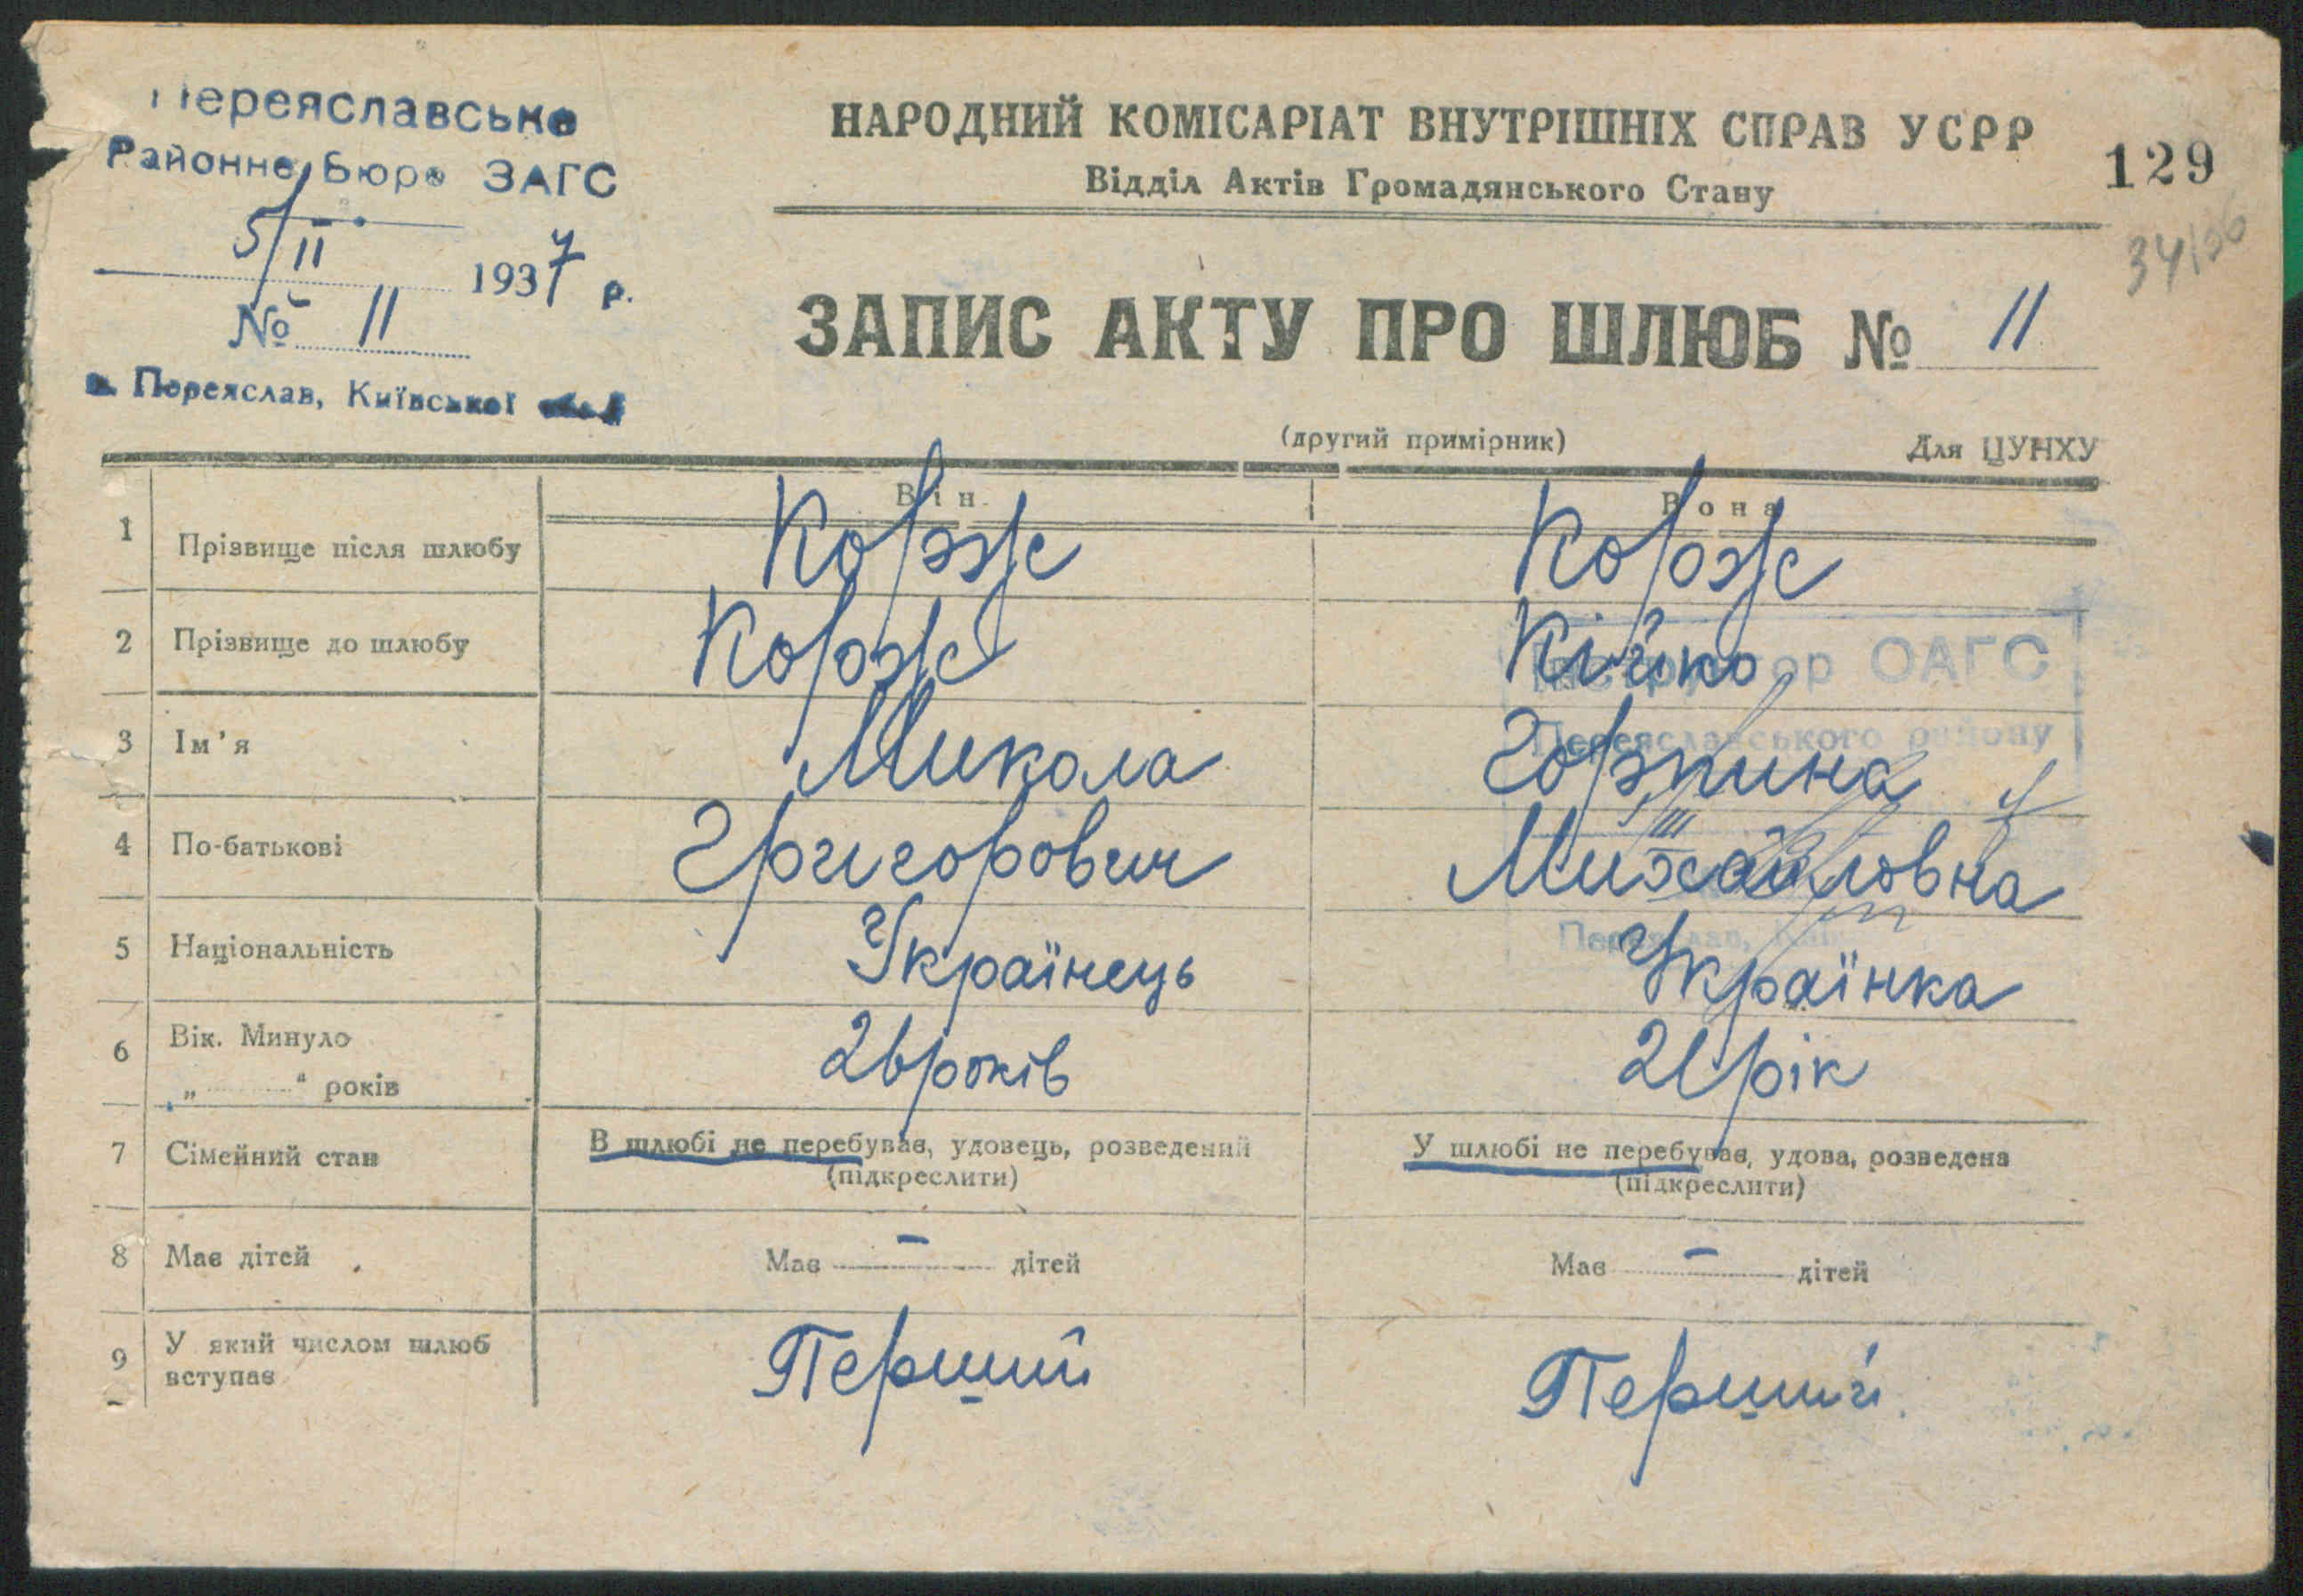 Переяславське
Районне Бюро ЗАГС
5/II 1937 р.
№ 11
м. Переяслав, Київської
НАРОДНИЙ КОМІСАРІАТ ВНУТРІШНІХ СПРАВ УСРР
Відділ Актів Громадянського Стану
129
34/36
ЗАПИС АКТУ ПРО ШЛЮБ № 11
(другий примірник) Для ЦУНХУ
Він Вона
1 Прізвище після шлюбу Корж Корж
2 Прізвище до шлюбу Корж Кійко
Інструктор ОАГС
3 Ім'я Микола Горпина
Переяславського району
4 По-батькові Григорович Михайловна
5 Національність Українець Українка
Переяслав,
6 Вік. Минуло „ “ років 26 років 21 рік
7 Сімейний стан В шлюбі не перебував, удовець, розведений У шлюбі не перебував, удова, розведена
(підкреслити) (підкреслити)
8 Має дітей Має – дітей Має – дітей
9 У який числом шлюб вступає Перший Перший